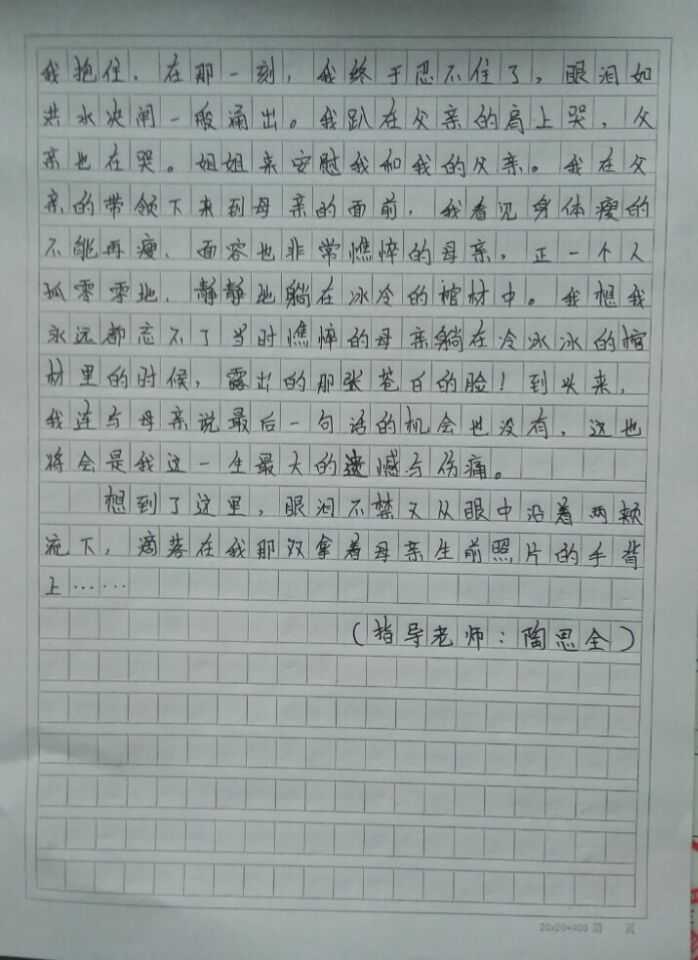 我抱住，在那一刻，我终于忍不住了，眼泪如
洪水决闸一般涌出。我趴在父亲的肩上哭，父
亲也在哭。姐姐来安慰我和我的父亲。我在父
亲的带领下来到母亲的面前，我看见身体瘦的
不能再瘦，面容也非常憔悴的母亲，正一个人
孤零零地，静静地躺在冰冷的棺材中。我想我
永远都忘不了当时憔悴的母亲躺在冷冰冰的棺
材里的时候，露出的那张苍白的脸！到头来，
我连与母亲说最后一句话的机会也没有，这也
将会是我这一生最大的遗憾与伤痛。
想到了这里，眼泪不禁又从眼中沿着两颊
流下，滴落在我那双拿着母亲生前照片的手背
上……
（指导老师：陶思全）
20×20=400 第 页